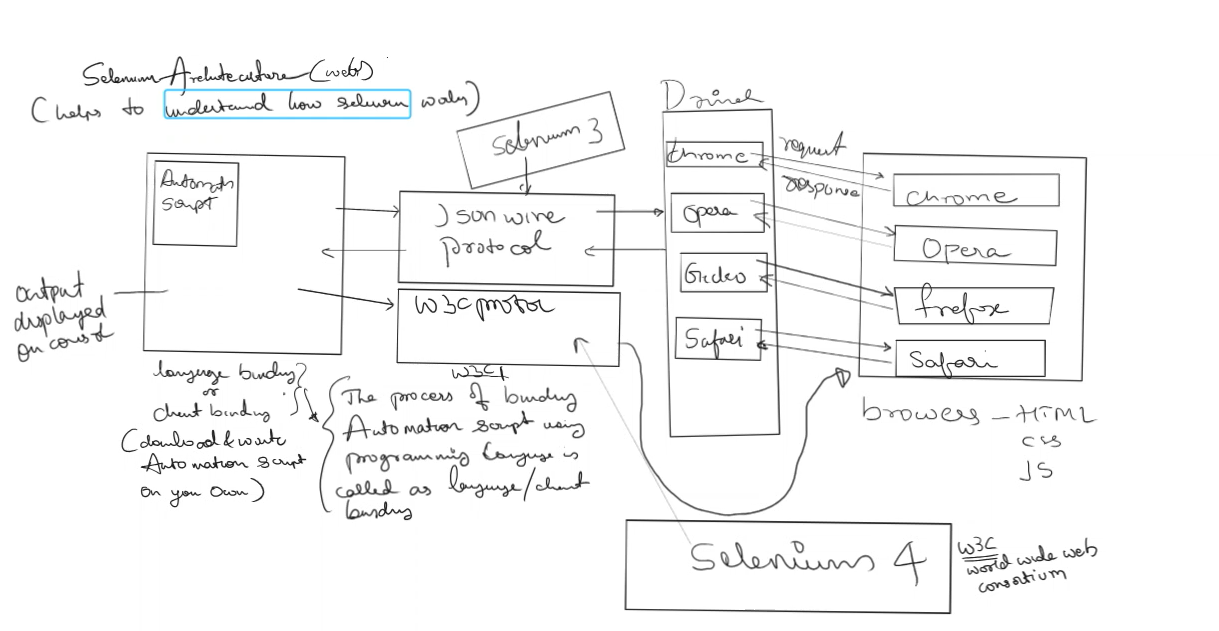 Selenium Architecuture (web)
(helps to understand how selenium works)
Selenium 3
Driver
Automation
Script
Json wire
protocol
W3C protocol
chrome
opera
Gecko
Safari
request
response
chrome
Opera
firefox
Safari
browers - HTML
css
JS
output
displayed
on consol
language binding
or
client binding
(download & write
Automation script
on you own)
The process of binding
Automation script using
programming language is
called as language/client
binding
Seleniums 4
W3C
world wide web
consortium